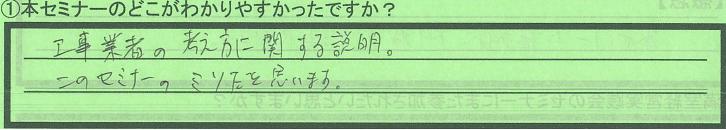 ①本セミナーのどこがわかりやすかったですか？
工事業者の考え方に関する説明。
このセミナーのミソだと思います。